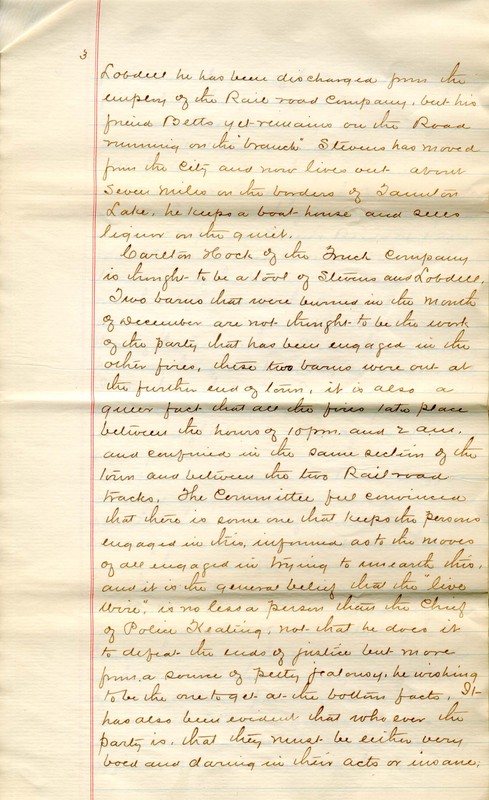 3
Lobdell he has been discharged from the
employ of the Rail road Company, but his
friend Betts yet remains on the Road
running on the "branch" Stevens has moved
from the City and now lives out about
seven miles on the borders of Taunton
Lake, he keeps a boat house and sells
liquor on the quiet.
Carlton Hock of the Truck Company
is thought to be a tool of Stevens and Lobdell.
Two barns that were burned in the Month
of December are not thought to be the work
of the party that has been engaged in the
other fires, these two barns were out at
the further end of town, it is also a
queer fact that all the fires take place
between the hours of 10 p.m. and 2 a.m.
and confined in the same section of the
town and between the two Rail road
tracks. The Committee feel convinced
that there is some one that keeps the persons
engaged in this, informed as to the moves
of all engaged in trying to unearth this,
and it is the general belief that the "live
wire", is no less a person than the Chief
of Police Keating, not that he does it
to defeat the ends of justice but more
from a source of petty jealousy, he wishing
to be the one to get at the bottom facts. It
has also been evident that who ever the
party is, that they must be either very
bold and daring in their acts or insane;